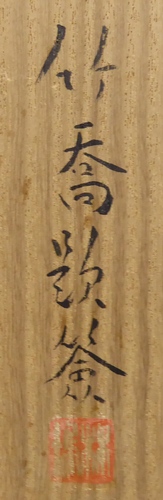 竹喬題簽